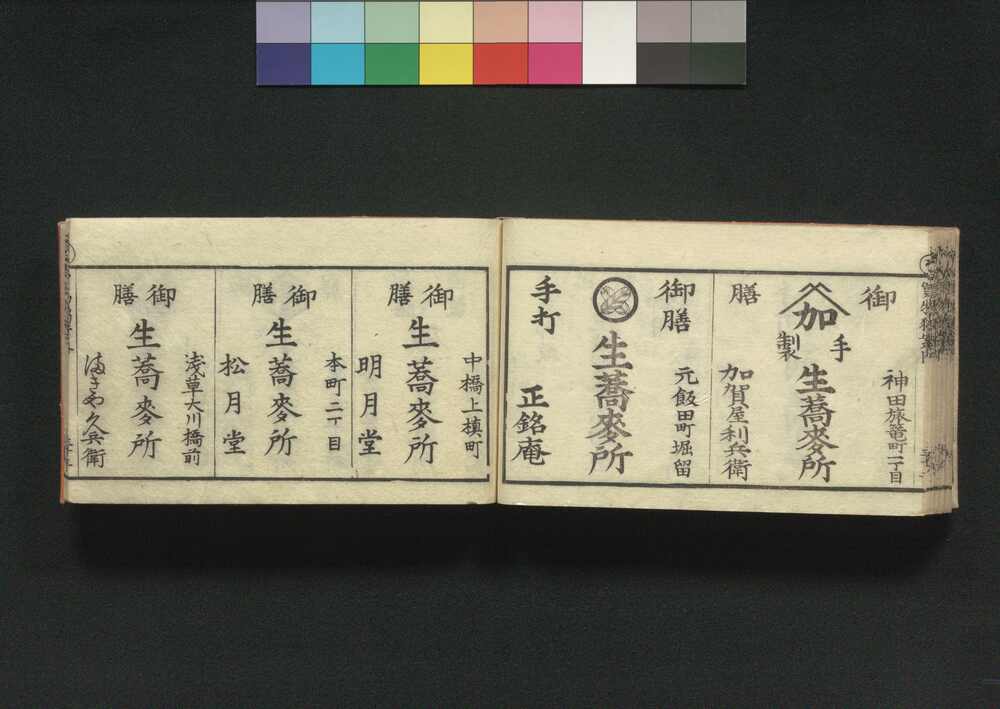 神田旅篭町一丁目
御膳
加
手製
生蕎麦所
加賀屋利兵衛
元飯田町堀留
御膳
生蕎麦所
手打
正銘庵
中橋上槙町
御膳
生蕎麦所
明月堂
本町二丁目
御膳
生蕎麦所
松月堂
浅草大川橋前
御膳
生蕎麦所
満きや久兵衛